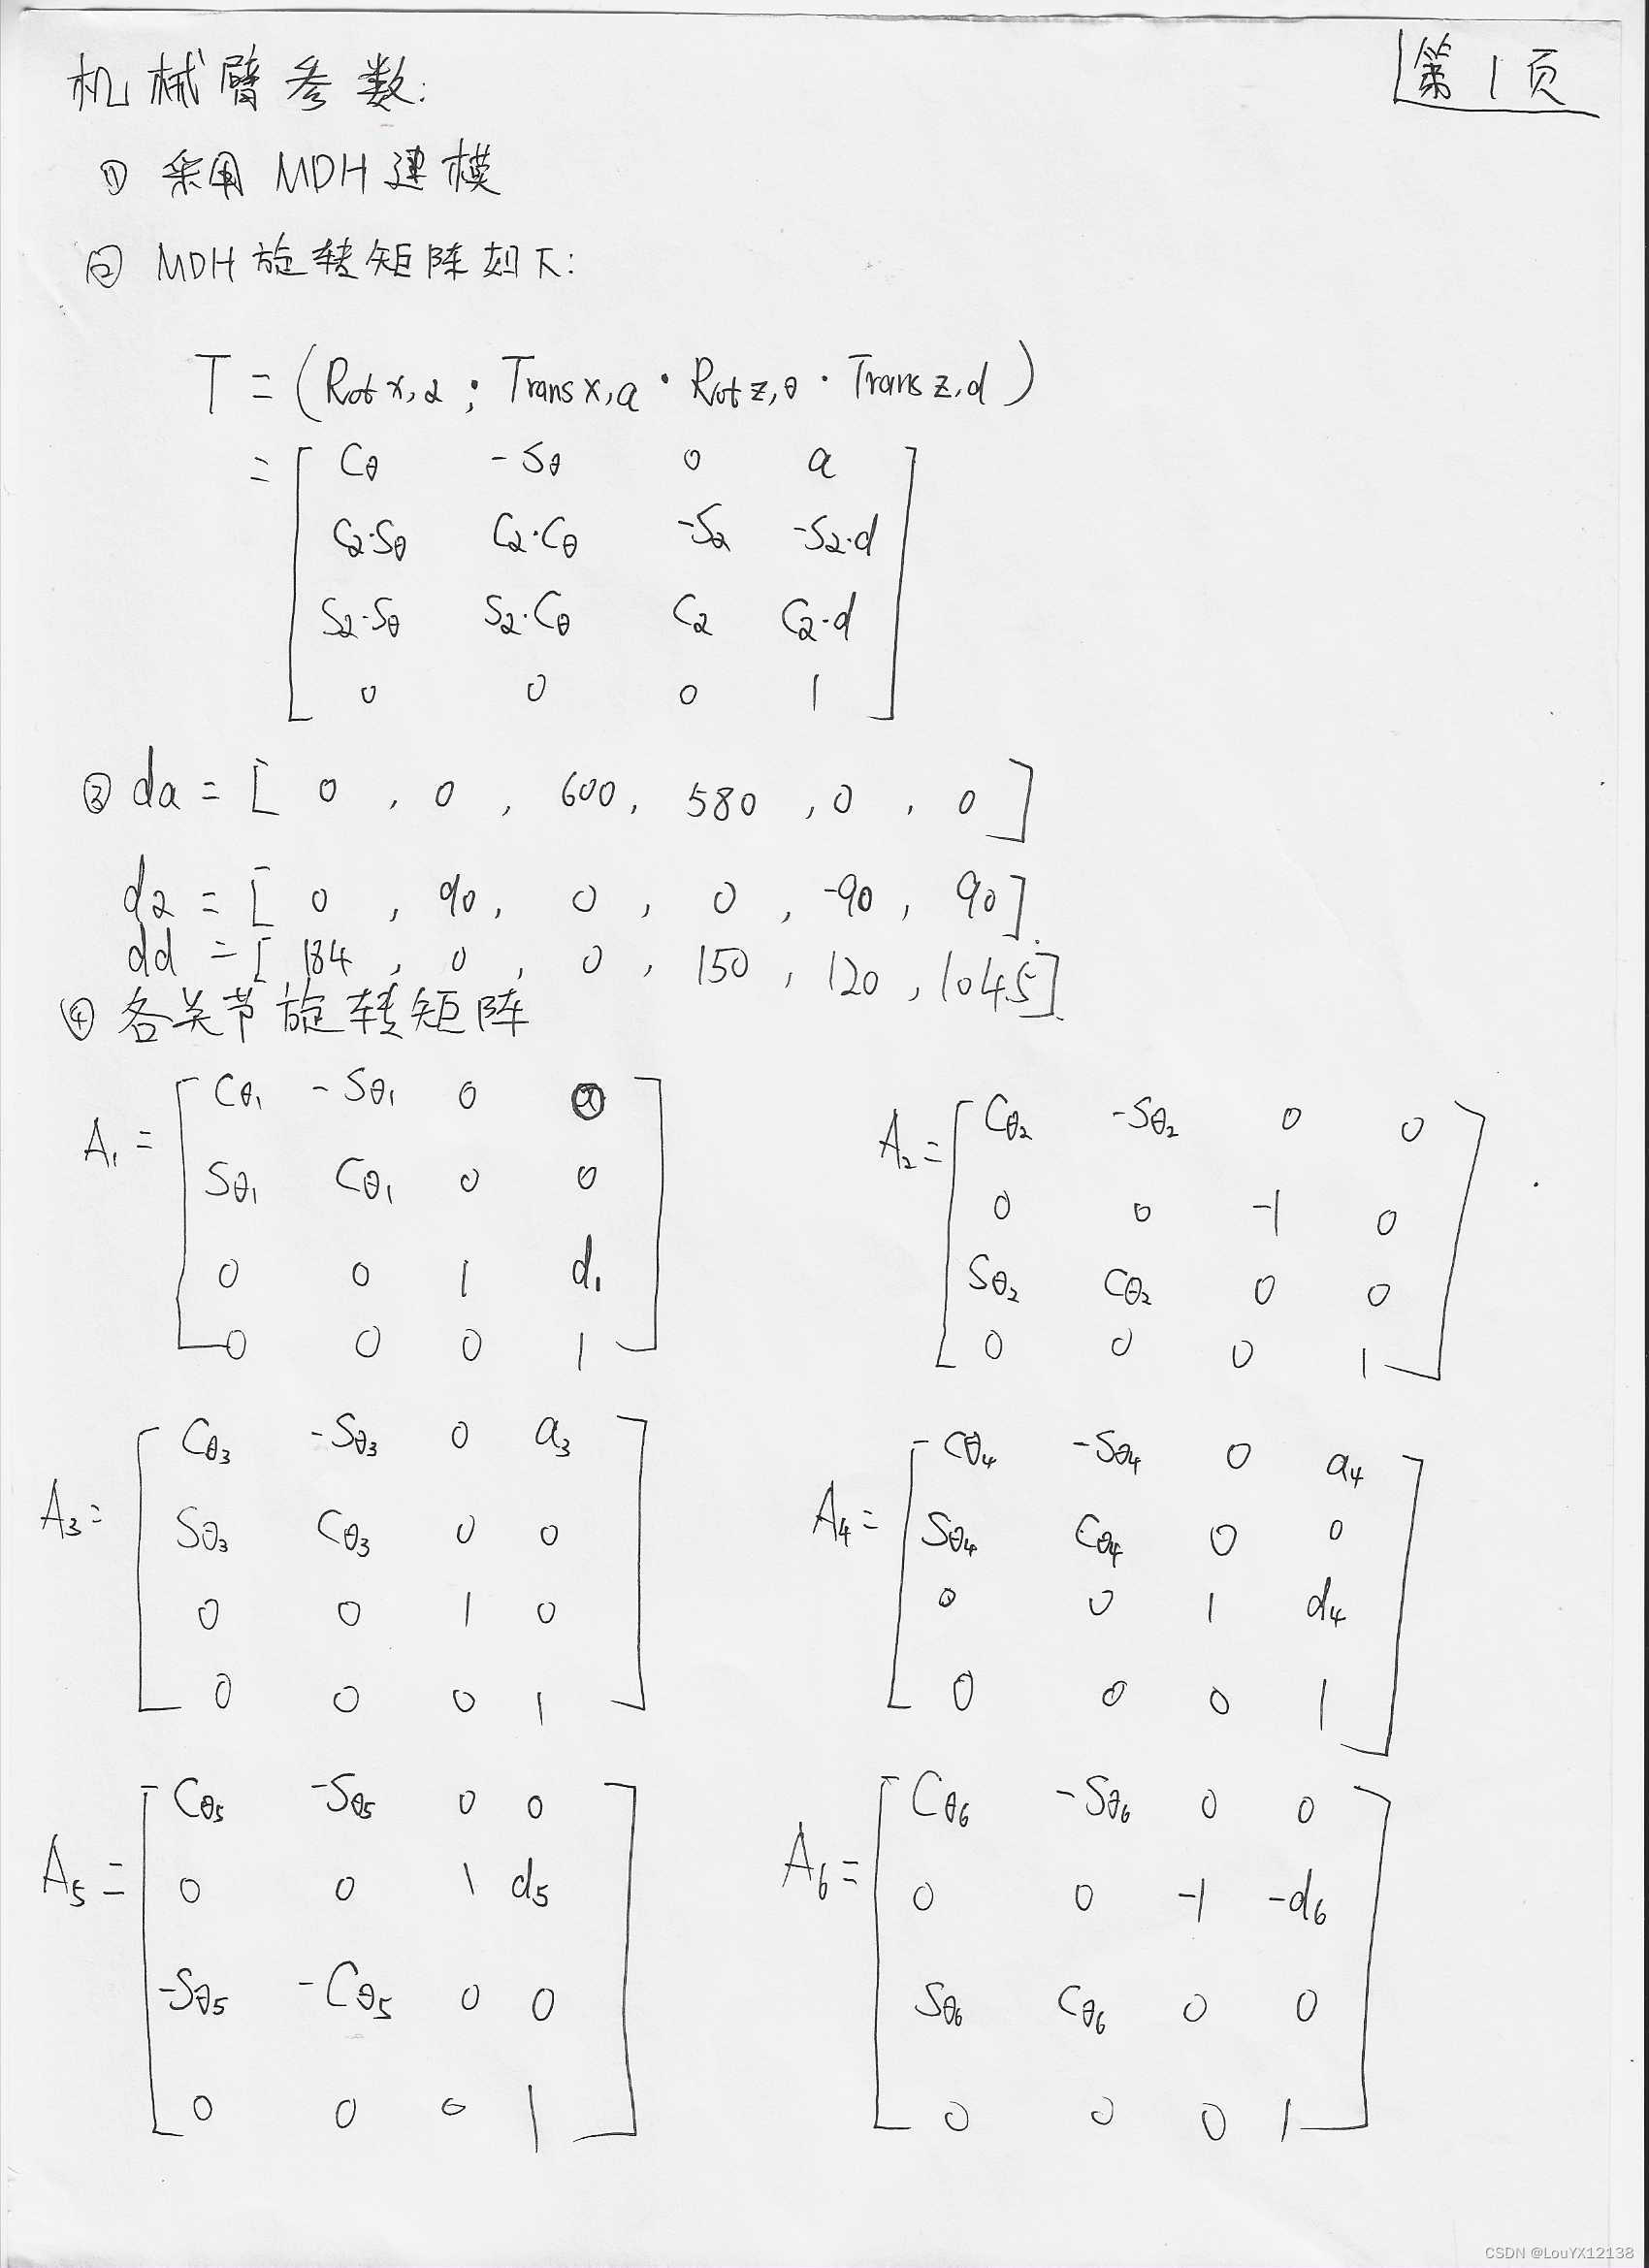 机械臂参数:
第1页
① 采用 MDH 建模
② MDH 旋转矩阵如下:
T = (Rot x,α · Trans x,a · Rot z,θ · Trans z,d)
= [ Cθ -Sθ 0 a
Cα·Sθ Cα·Cθ -Sα -Sα·d
Sα·Sθ Sα·Cθ Cα Cα·d
0 0 0 1 ]
③ da = [ 0 , 0 , 600, 580 , 0 , 0 ]
dα = [ 0 , 90, 0 , 0 , -90 , 90].
dd = [ 184 , 0 , 0 , 150 , 120 , 1045].
④ 各关节旋转矩阵
A₁ = [ Cθ₁ -Sθ₁ 0
Sθ₁ Cθ₁ 0 0
0 0 1 d₁
0 0 0 1 ]
A₂ = [ Cθ₂ -Sθ₂ 0 0
0 0 -1 0
Sθ₂ Cθ₂ 0 0
0 0 0 1 ]
A₃ = [ Cθ₃ -Sθ₃ 0 a₃
Sθ₃ Cθ₃ 0 0
0 0 1 0
0 0 0 1 ]
A₄ = [ Cθ₄ -Sθ₄ 0 a₄
Sθ₄ Cθ₄ 0 0
0 0 1 d₄
0 0 0 1 ]
A₅ = [ Cθ₅ -Sθ₅ 0 0
0 0 1 d₅
-Sθ₅ -Cθ₅ 0 0
0 0 0 1 ]
A₆ = [ Cθ₆ -Sθ₆ 0 0
0 0 -1 -d₆
Sθ₆ Cθ₆ 0 0
0 0 0 1 ]
CSDN @LouYX12138